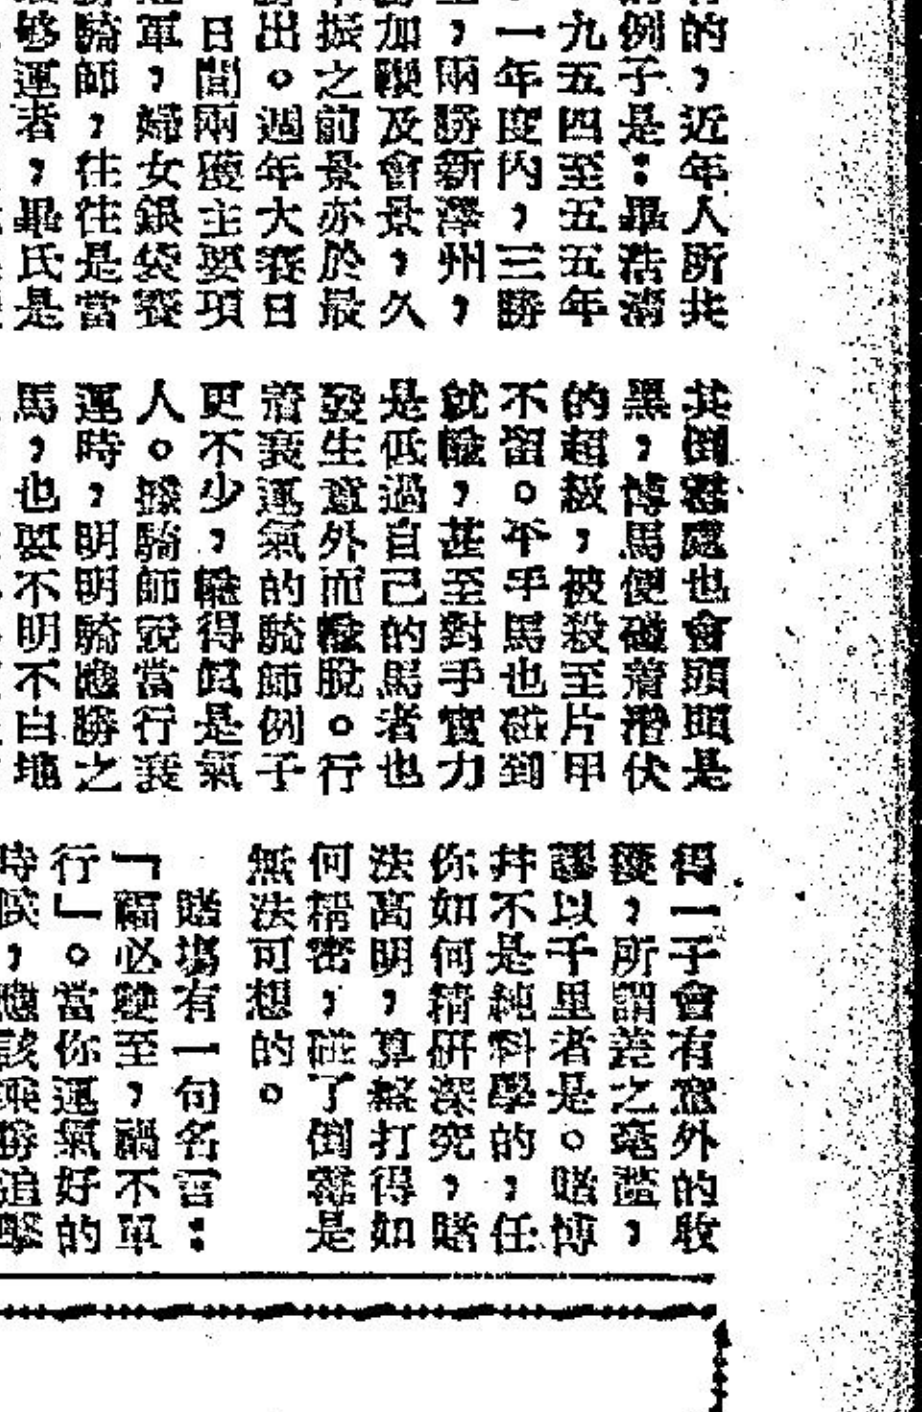 的，近年人所共
例子是：畢浩清
九五四至五五年
一年度內，三勝
，兩勝新澤州，
加鞭及會景，久
振之前景亦於最
出。週年大賽日
日間兩獲主要項
軍，婦女銀袋賽
騎師，往往是當
够運者，畢氏是
其倒霉處也會頭頭是
黑，博馬便碰着潛伏
的超級，被殺至片甲
不留。平乎馬也碰到
就輸，甚至對手實力
是低過自己的馬者也
發生意外而輸脫。行
着衰運氣的騎師例子
更不少，輸得眞是氣
人。據騎師說當行衰
運時，明明騎應勝之
馬，也要不明不白地
得一子會有意外的收
穫，所謂差之毫釐，
謬以千里者是。賭博
并不是純科學的，任
你如何精研深究，賭
法高明，算盤打得如
何精密，碰了倒霉是
無法可想的。
賭塲有一句名言：
「福必雙至，禍不單
行」。當你運氣好的
時候，應該乘勝追擊